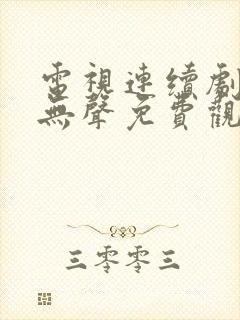 電視連續劇
無聲免費觀
三零零三